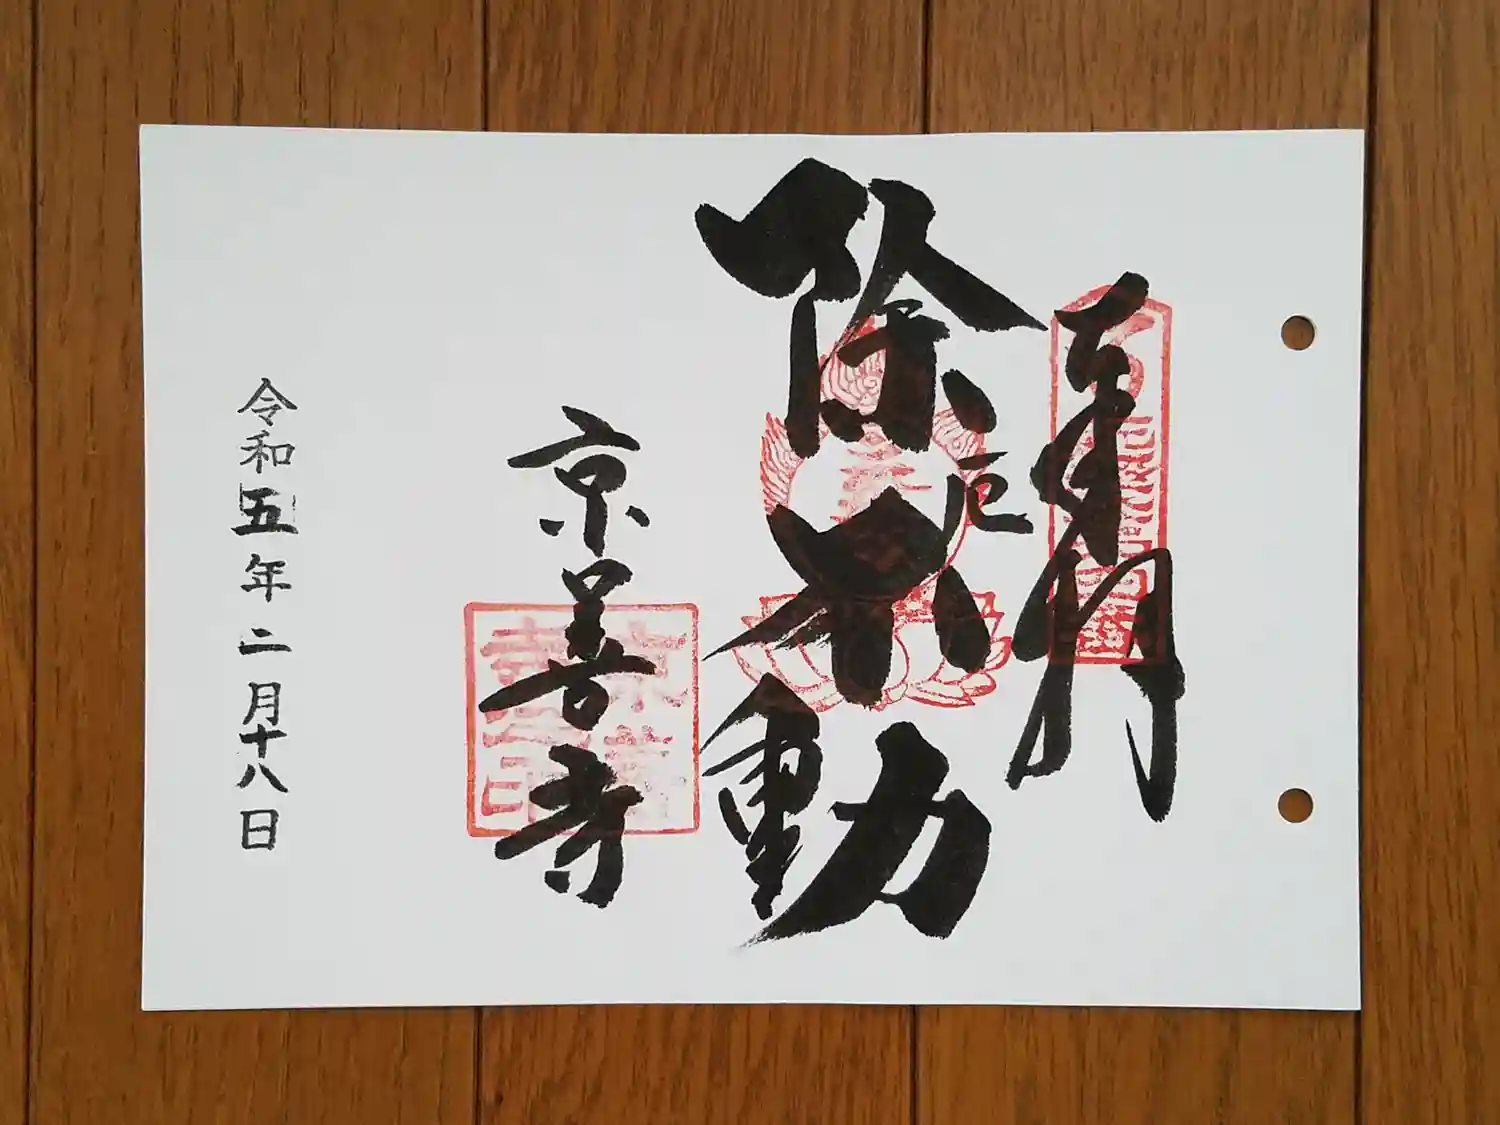 奉拝
除厄不動
京善寺
令和五年二月十八日